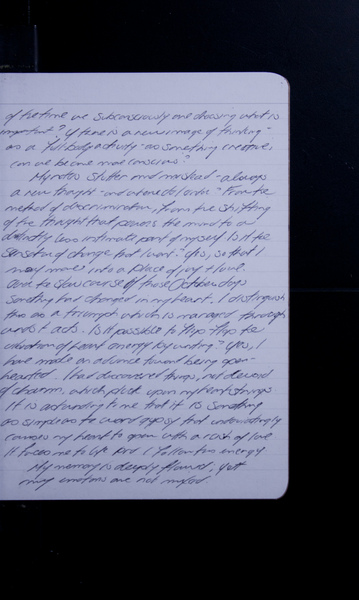 of the time we subconsciously are choosing what is
important? If there is a new image of thinking -
as a full body activity - as something creative,
can we become more conscious?
My notes stutter and mislead - always
a new thought - and where do I enter - From the
method of discrimination, from the shifting
of the thought that powers the mind to a
distinctly less intimate part of myself. Is it the
sensation of change that I want? Yes, so that I
may move into a place of joy + love.
And the slow course of those October days
something had changed in my heart. I distinguish
this as a triumph which is managed through
words + acts. Is it possible to flip-flop the
vibration of heart energy by writing? Yes, I
have made an advance toward being open-
hearted. I had discovered things, not devoid
of charm, which pluck upon my heart strings
It is astounding to me that it is something
as simple as the word gypsy that unhesitatingly
causes my heart to open with a rush of love
It forces me to lift and I follow its energy
My memory is deeply flawed, yet
my emotions are not muted.